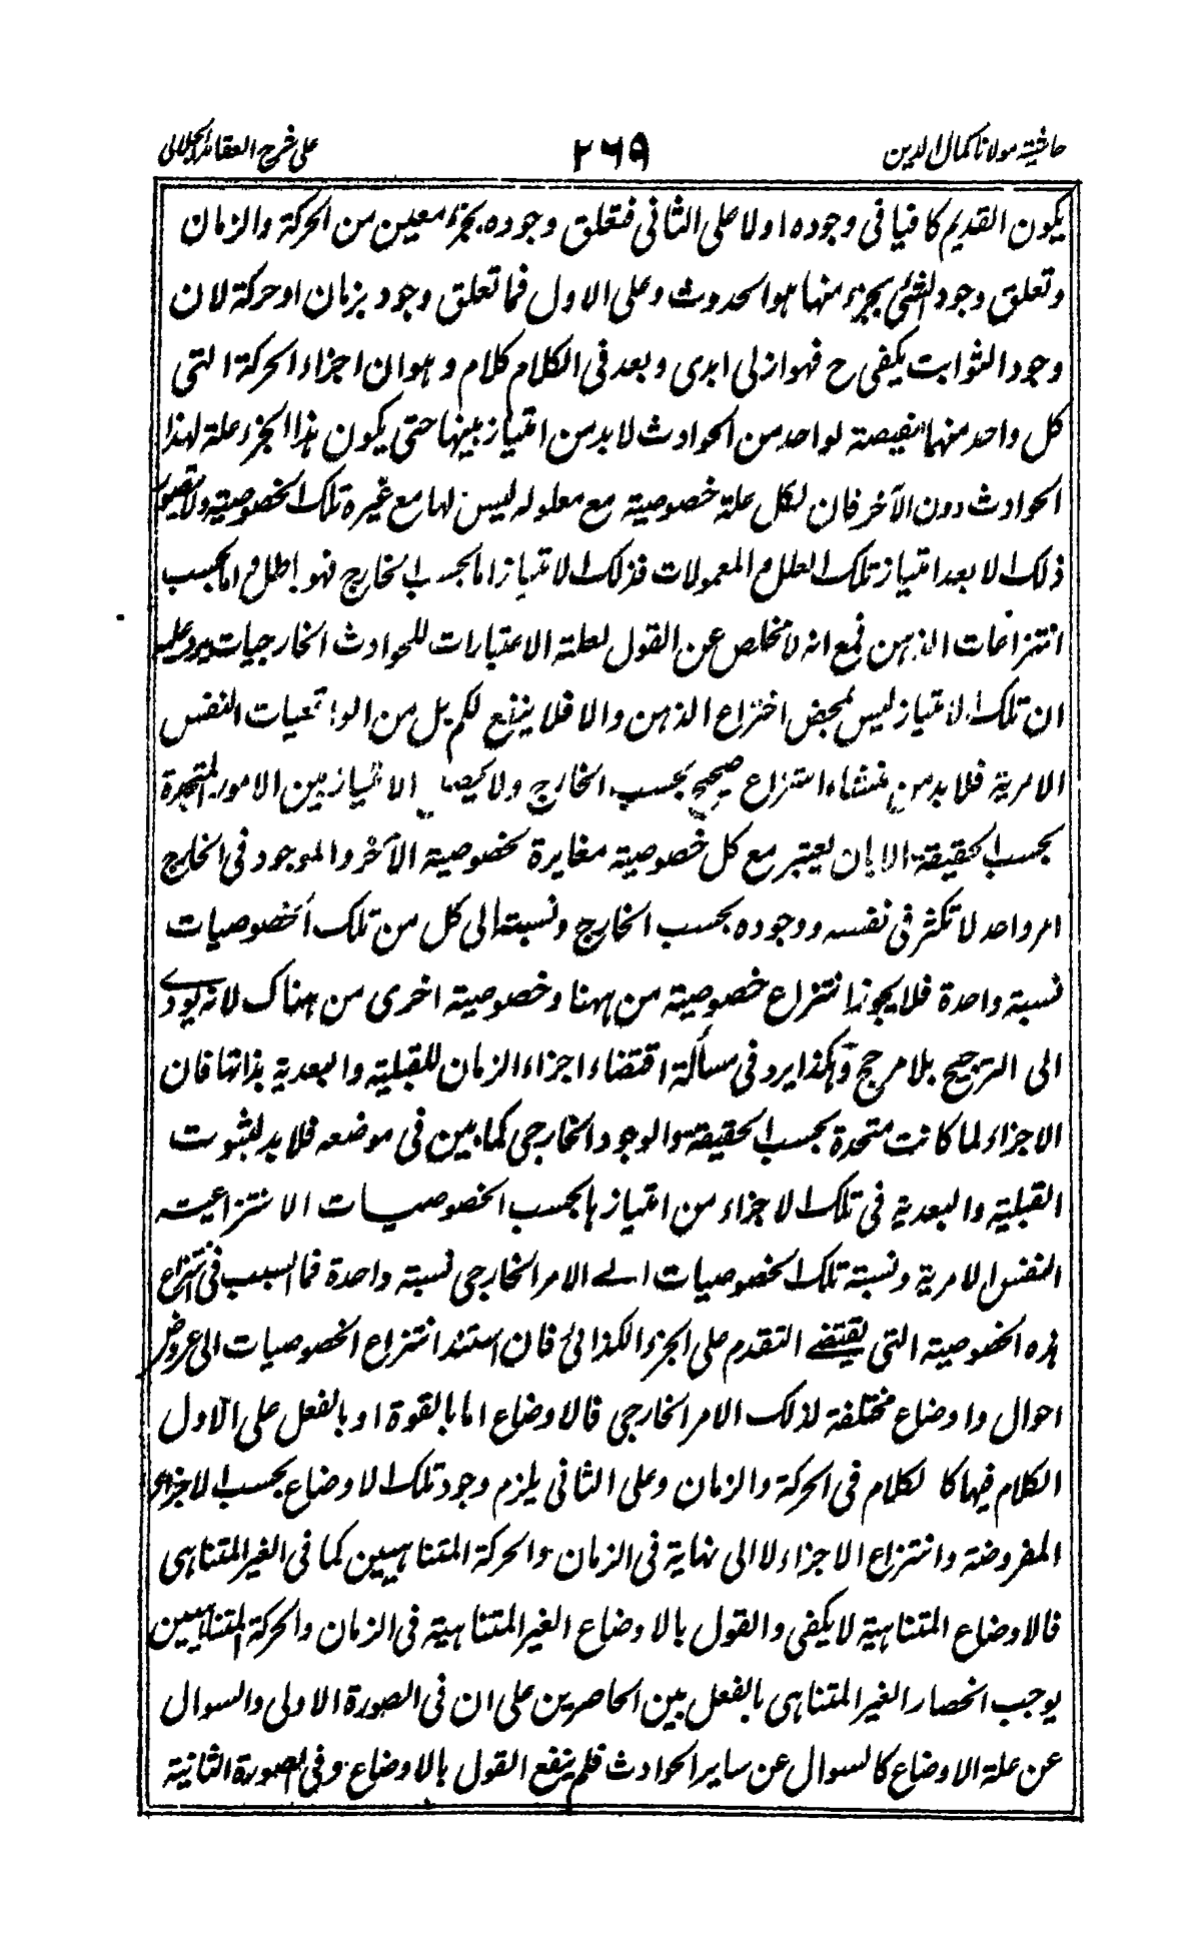 حاشية مولانا كمال الدين
٢٦٩
على شرح العقائد الجلالى
يكون القديم كافيا فى وجوده اولا على الثانى فتعلق وجوده بجزء معين من الحركة والزمان
وتعلق وجود الشئ بجزء منها هو الحدوث وعلى الاول فما تعلق وجود بزمان او حركة لان
وجود الثوابت يكفى ح فهو ازلى ابدى وبعد فى الكلام كلام وهو ان اجزاء الحركة التى
كل واحد منها مفيضة لواحد من الحوادث لا بد من امتياز بينها حتى يكون هذا الجزء علة لهذا
الحوادث دون الآخر فان لكل علة خصوصية مع معلوله ليس لها مع غيره تلك الخصوصية ولا يتصور
ذلك الا بعد امتياز تلك العلل والمعمولات فذلك الامتياز اما بحسب الخارج فهو باطل واما بحسب
انتزاعات الذهن فمع انه لا مخلص عن القول لعلية الاعتبارات للحوادث الخارجيات يرد عليه
ان تلك الامتياز ليس لمحض اختراع الذهن والا فلا ينفع لكم بل من الواقعيات النفس
الامرية فلا بد من منشاء انتزاع صحيح بحسب الخارج ولا الامتياز بين الامور المتحدة
بحسب الحقيقة الا بان يعتبر مع كل خصوصية مغايرة لخصوصية الآخر والموجود فى الخارج
امر واحد لا تكثر فى نفسه ووجوده بحسب الخارج ونسبته الى كل من تلك الخصوصيات
نسبة واحدة فلا يجوز انتزاع خصوصية من ههنا وخصوصية اخرى من هناك لانه يودى
الى الترجيح بلا مرجح وهكذا يرد فى مسألة اقتضاء اجزاء الزمان للقبلية والبعدية بذاتها فان
الاجزاء لما كانت متحدة بحسب الحقيقة والوجود الخارجى كما بين فى موضعه فلا بد لثبوت
القبلية والبعدية فى تلك الاجزاء من امتيازها بحسب الخصوصيات الانتزاعية
النفس الامرية ونسبة تلك الخصوصيات الى الامر الخارجى نسبة واحدة فما السبب فى انتزاع
هذه الخصوصية التى يقتضى التقدم على الجزء الكذائى فان استند انتزاع الخصوصيات الى عروض
احوال واوضاع مختلفة لذلك الامر الخارجى فالاوضاع اما بالقوة او بالفعل على الاول
الكلام فيها كالكلام فى الحركة والزمان وعلى الثانى يلزم وجود تلك الاوضاع بحسب الاجزاء
المفروضة وانتزاع الاجزاء لا الى نهاية فى الزمان والحركة المتناهيين كما فى الغير المتناهى
فالاوضاع المتناهية لا يكفى والقول بالاوضاع الغير المتناهية فى الزمان والحركة المتناهيين
يوجب انحصار الغير المتناهى بالفعل بين الحاصرين على ان فى الصورة الاولى والسوال
عن علة الاوضاع كالسوال عن ساير الحوادث فلم ينفع القول بالاوضاع وفى الصورة الثانية